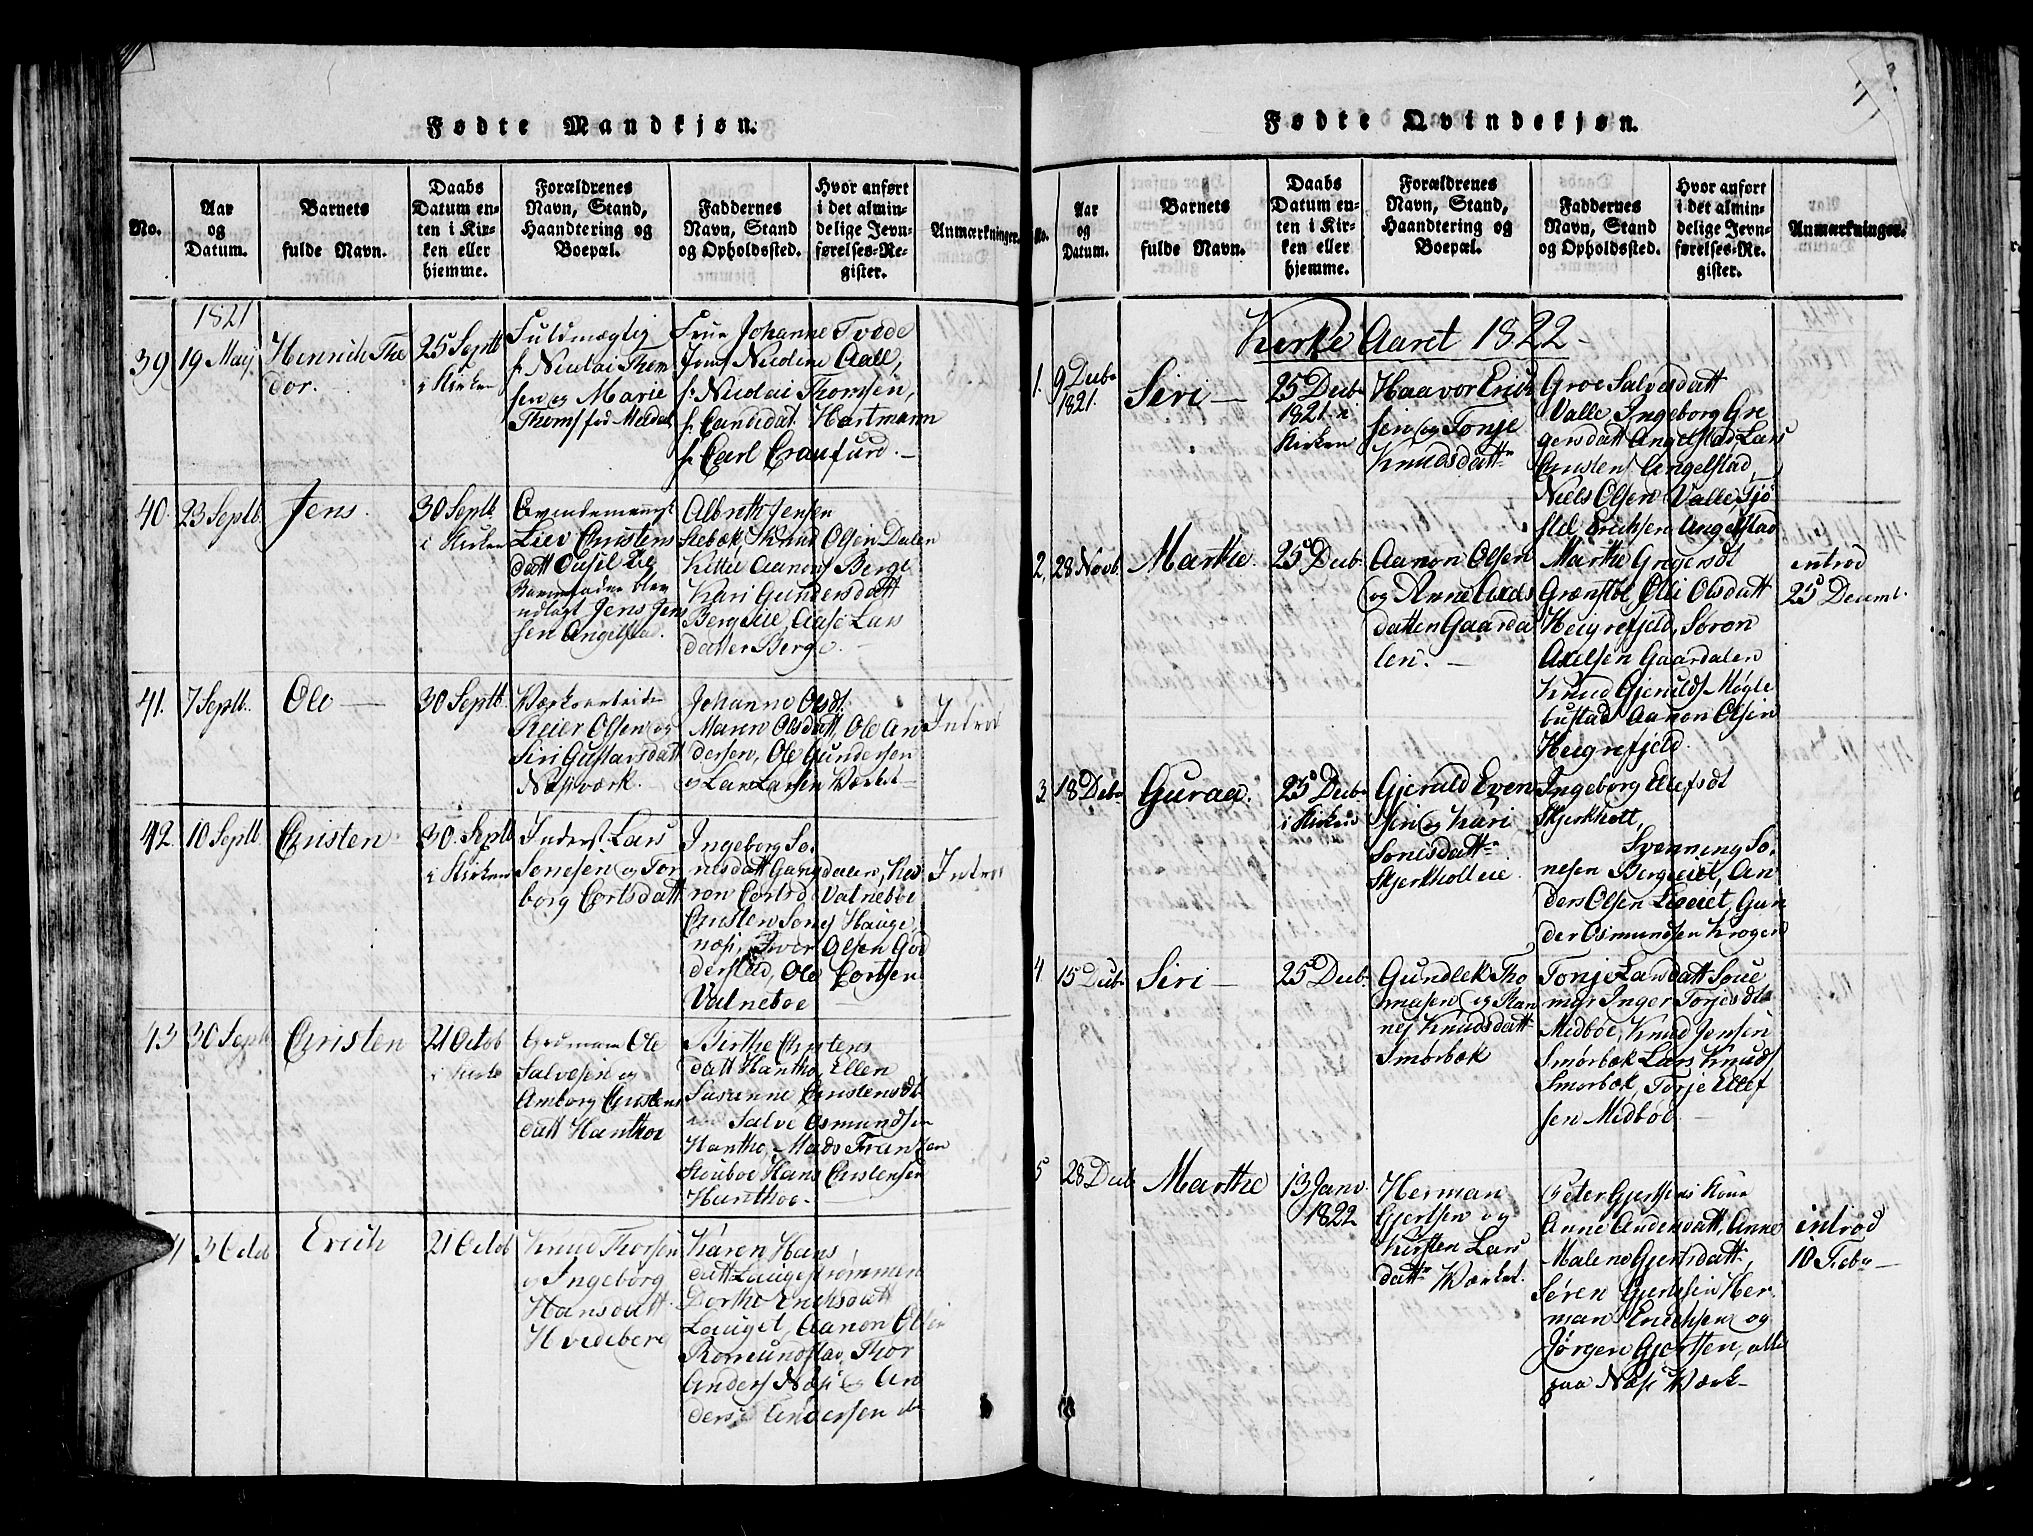 Fødte Mandkjøn.
No.
Aar
og
Datum.
Barnets
fulde Navn.
Daabs
Datum en-
ten i Kir-
ken eller
hjemme.
Forældrenes
Navn, Stand,
Haandtering og
Boepæl.
Faddernes
Navn, Stand
og Opholdssted.
Hvor anført
i det almin-
delige Jevn-
førelses-Re-
gister.
Anmærkninger.
1821
39
19 Maij
Henrich The
dor.
25 Septb
i Kirken
Fuldmægtig
hr Nicolai Thom
sen og Marie
Thoms fød Meldal
Frue Johanne Tvede
Jomf Nicoline Aall,
hr Nicolai Thomsen,
hr Candidat Hartmann
hr Carl Craufurd. —
40.
23 Septb.
Jens.
30 Septb
i Kirken
Qvindemenskt
Liev Cristens
datt
Barnefader blev
udlagt Jens Jen
sen Angelstad.
Albreth Jensen
Knud Olsen Dalen
Kittil Aanons Berge
Kari Gundersdatt
Bergeeie, Aase Lars
datter Berge. —
41.
7 Septb.
Ole —
30 Septb.
Værksarbeide
Reier Olsen og
Siri Gustavsdatt
Næsværk. —
Johanne Olsdt
Maren Olsdatt, Ole An
dersen, Ole Gundersen
og Lars Larsen Værket —
Introd
42.
10 Septb
Cristen
30. Septb
i Kirken
Inderst Lars
Sonesen og Tor
borg Cortsdatt
Ingeborg So
nesdatt Gangdalen, Ka
ren Cortsd, Valneboe
Cristen Sones Hauge
næs, Iver Olsen God
derstad, Ole Cortsen
Valneboe —
Introd
43
30 Septb
Cristen
21 Octob
i Kirke
Gaardmand Ole
Salvesen og
Amborg Cristens
datt Hanthoe
Birthe Cristens
datt Hantho, Ellen
Susanne Cristensdt
Salve Osmundsen
Hantho, Mads Frantzen
Stouboe Hans Cristensen
Hanthoe. —
3 Octob
Erich
21 Octob
Knud Thorsen
og Ingeborg
Hansdatt
Hvedeberg
Karen Hans
datt Laugestrømmen
Dorthe Erichsdatt
Lauget, Aanon Olsen
Romundstad, Thor
Anders Næs og An
ders Andersen
Fødte Qvindekjøn.
No.
Aar
og
Datum.
Barnets
fulde Navn.
Daabs
Datum en-
ten i Kir-
ken eller
hjemme.
Forældrenes
Navn, Stand,
Haandtering og
Boepæl.
Faddernes
Navn, Stand
og Opholdssted.
Hvor anført
i det almin-
delige Jevn-
førelses-Re-
gister.
Anmærkninger.
Kirke Aaret 1822 —
1.
9 Decbr
1821.
Siri —
25 Decbr
1821 i
Kirken
Haavor Erich
sen og Tonje
Knudsdattr
Groe Salvesdatt
Valle, Ingeborg Gre
gersdatt Angelstad Lars
Cristens Angelstad,
Niels Olsen Valle, Kjø
stel Erichsen Angelstad
2.
28 Novb.
Marthe.
25 Decbr
Aanon Olsen
og Anne Axels
datten Gaarda
len. —
Marthe Gregersdt
Grønstøl Olli Olsdatt
Heigrefjeld, Søren
Axelsen Gaardalen
Knud Gjerulds Møgle
bustad Aanon Olsen
Heigrefjeld.
introd
25 Decemb.
3
18 Decbr
Guraa.
25 Decbr
i Kirken
Gjeruld Even
sen og Kari
Sonesdattr
Skjerkholt eie
Ingeborg Ellefsdt
Skjerkholt,
Svenning So
nesen Bergeeiet, An
ders Olsen Lieeiet, Gun
der Osmundsen Krogen
4
15 Decbr
Siri —
25 Decbr
Gundlek Tho
masen og Ran
nej Knudsdatt
Smørbæk
Tonje Larsdatt
Inger Torjesdt
Midboe, Knud Jensen
Smørbæk Lars Knuds
Smørbæk, Torje Ellef
sen Midboe. —
5
28 Decbr
Marthe
13 Janv.
1822
Herman
Gjertsen og
Kirsten Lars
dattr Værket.
Peter Gjertsens Kone
Anne Andersdatt, Anne
Malene Gjertsdatt
Søren Gjertsen Her
man Erichsen og
Jørgen Gjertsen, alle
paa Næs Værk —
introd
10 Febr —